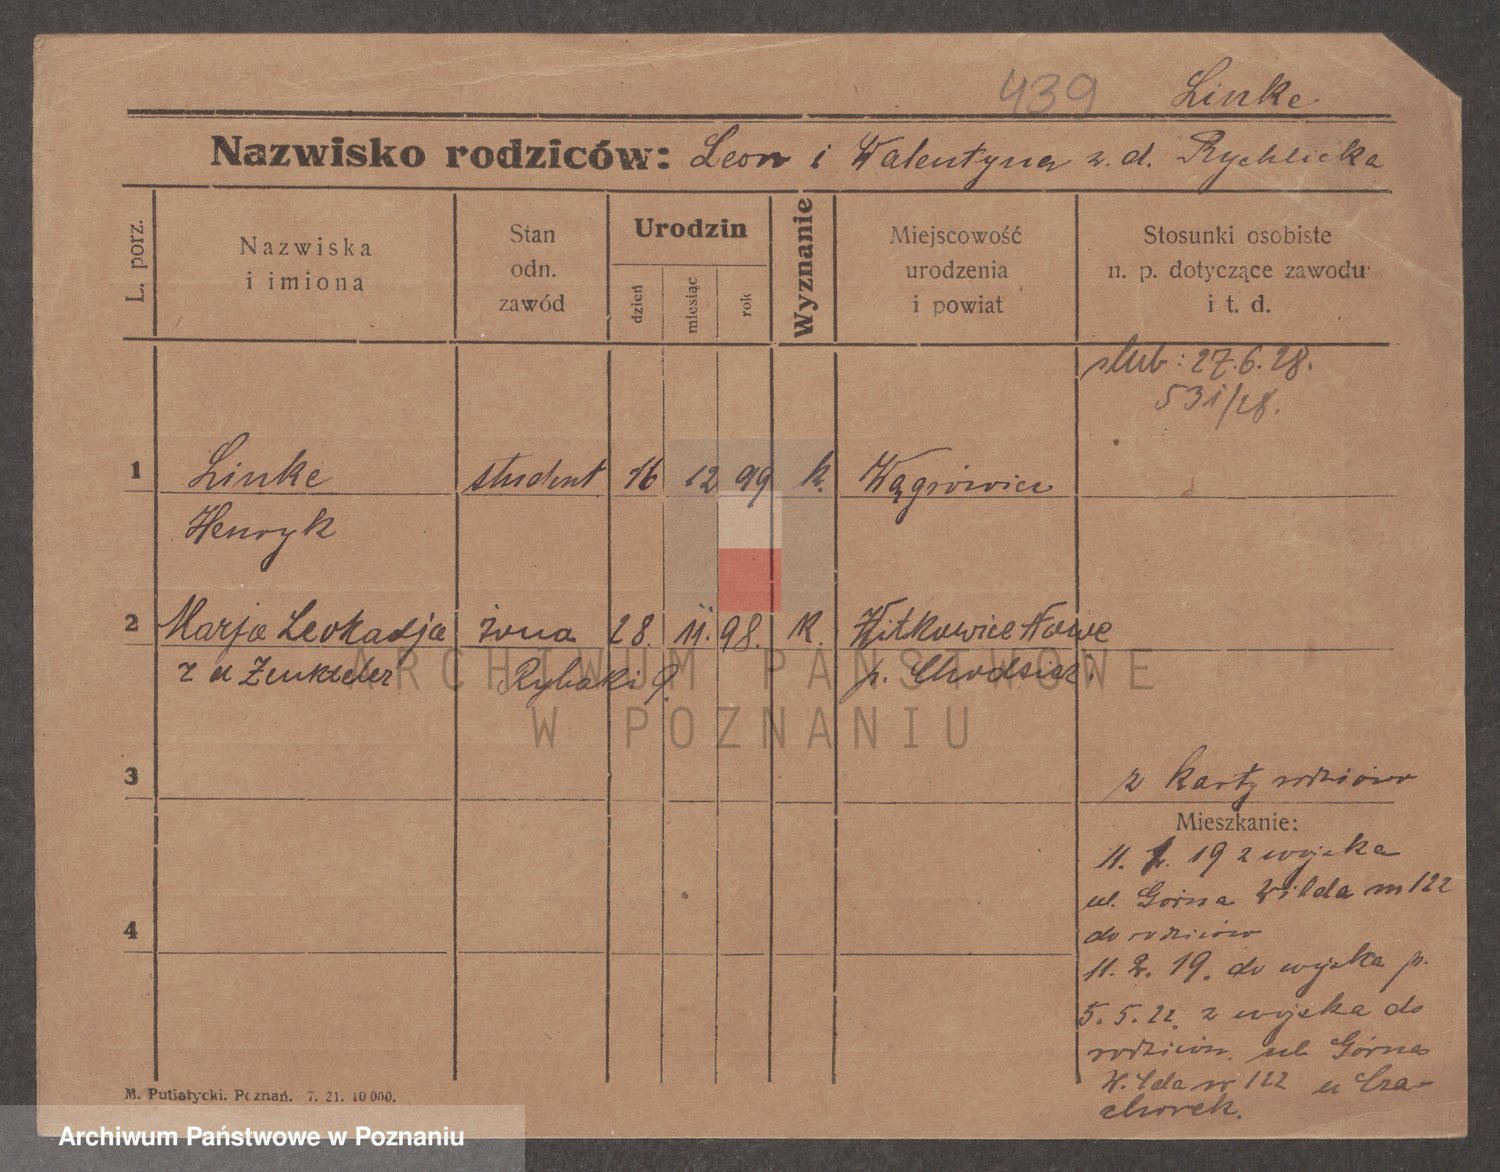 439 Linke
Nazwisko rodziców: Leon i Walentyna z. d. Rychlicka
L. porz.
Nazwiska
i imiona
Stan
odn.
zawód
Urodzin
dzień
miesiąc
rok
Wyznanie
Miejscowość
urodzenia
i powiat
Stosunki osobiste
n. p. dotyczące zawodu
i t. d.
slub: 27.6.28.
531/28.
1 Linke student 16 12 99 k. Wągrowiec
Henryk
2 Marja Leokadja żona 28. 11. 98. k. Witkowice Nowe
z d Zenkteler Rybaki 9. p. Chodzież.
ARCHIWUM PAŃSTWOWE
W POZNANIU
3 z karty rodziców
Mieszkanie:
11. 19 z wojska
ul. Górna Wilda nr 122
do rodziców
4
11. 2. 19. do wojska p.
5. 5. 22. z wojska do
rodziców. ul. Górna
Wilda nr 122 u Cza-
chorek.
M. Putiatycki. Poznań. 7. 21. 10 000.
Archiwum Państwowe w Poznaniu